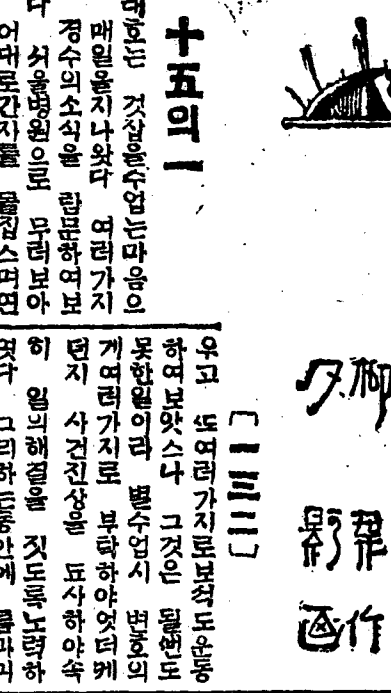 夕影 画
柳葉 作
[一三二]
十五의 一
태호는 것잡을수업는마음으
매일을지나왓다 여러가지
경수의소식을 탐문하여보
다 서울병원으로 무러보아
어대로간지를 몰
우고 또여러가지로보석도운동
하여보앗스나 그것은 될뻔도
못한일이라 별수업시 변호의
게여러가지로 부탁하야엇더케
던지 사건진상을 됴사하야속
히 일의해결을 짓도록노력하
엿다 그리하는동안에